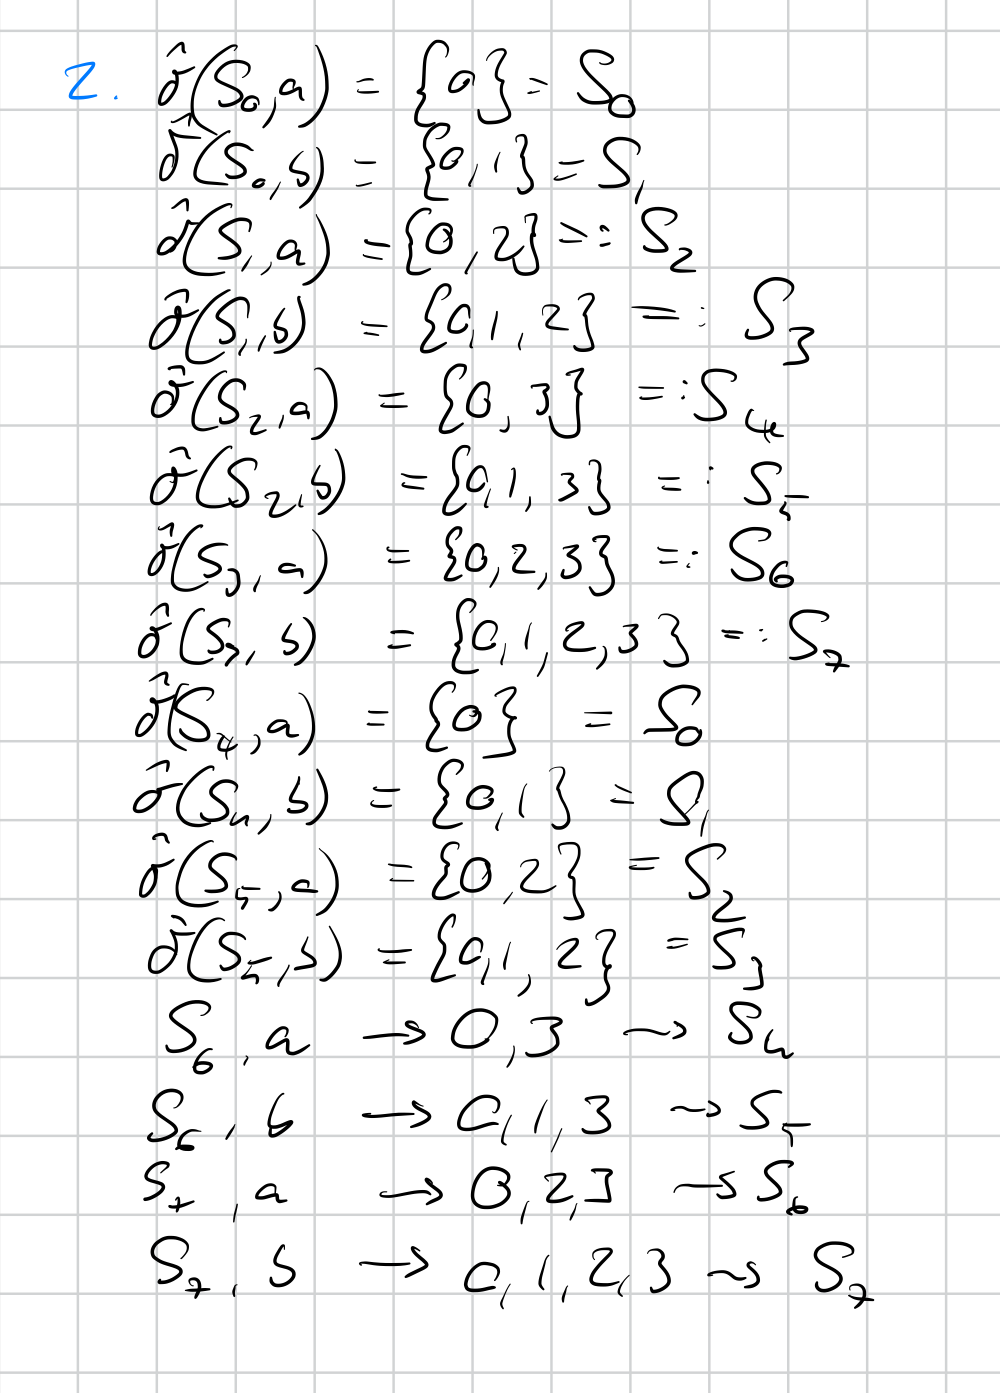 2. δ̂(S₀,a) = {0} = S₀
δ̂(S₀,b) = {0,1} = S₁
δ̂(S₁,a) = {0,2} =: S₂
δ̂(S₁,b) = {0,1,2} =: S₃
δ̂(S₂,a) = {0,3} =: S₄
δ̂(S₂,b) = {0,1,3} =: S₅
δ̂(S₃,a) = {0,2,3} =: S₆
δ̂(S₃,b) = {0,1,2,3} =: S₇
δ̂(S₄,a) = {0} = S₀
δ̂(S₄,b) = {0,1} = S₁
δ̂(S₅,a) = {0,2} = S₂
δ̂(S₅,b) = {0,1,2} = S₃
S₆, a → 0,3 ⇝ S₄
S₆, b → 0,1,3 ⇝ S₅
S₇, a → 0,2,3 ⇝ S₆
S₇, b → 0,1,2,3 ⇝ S₇